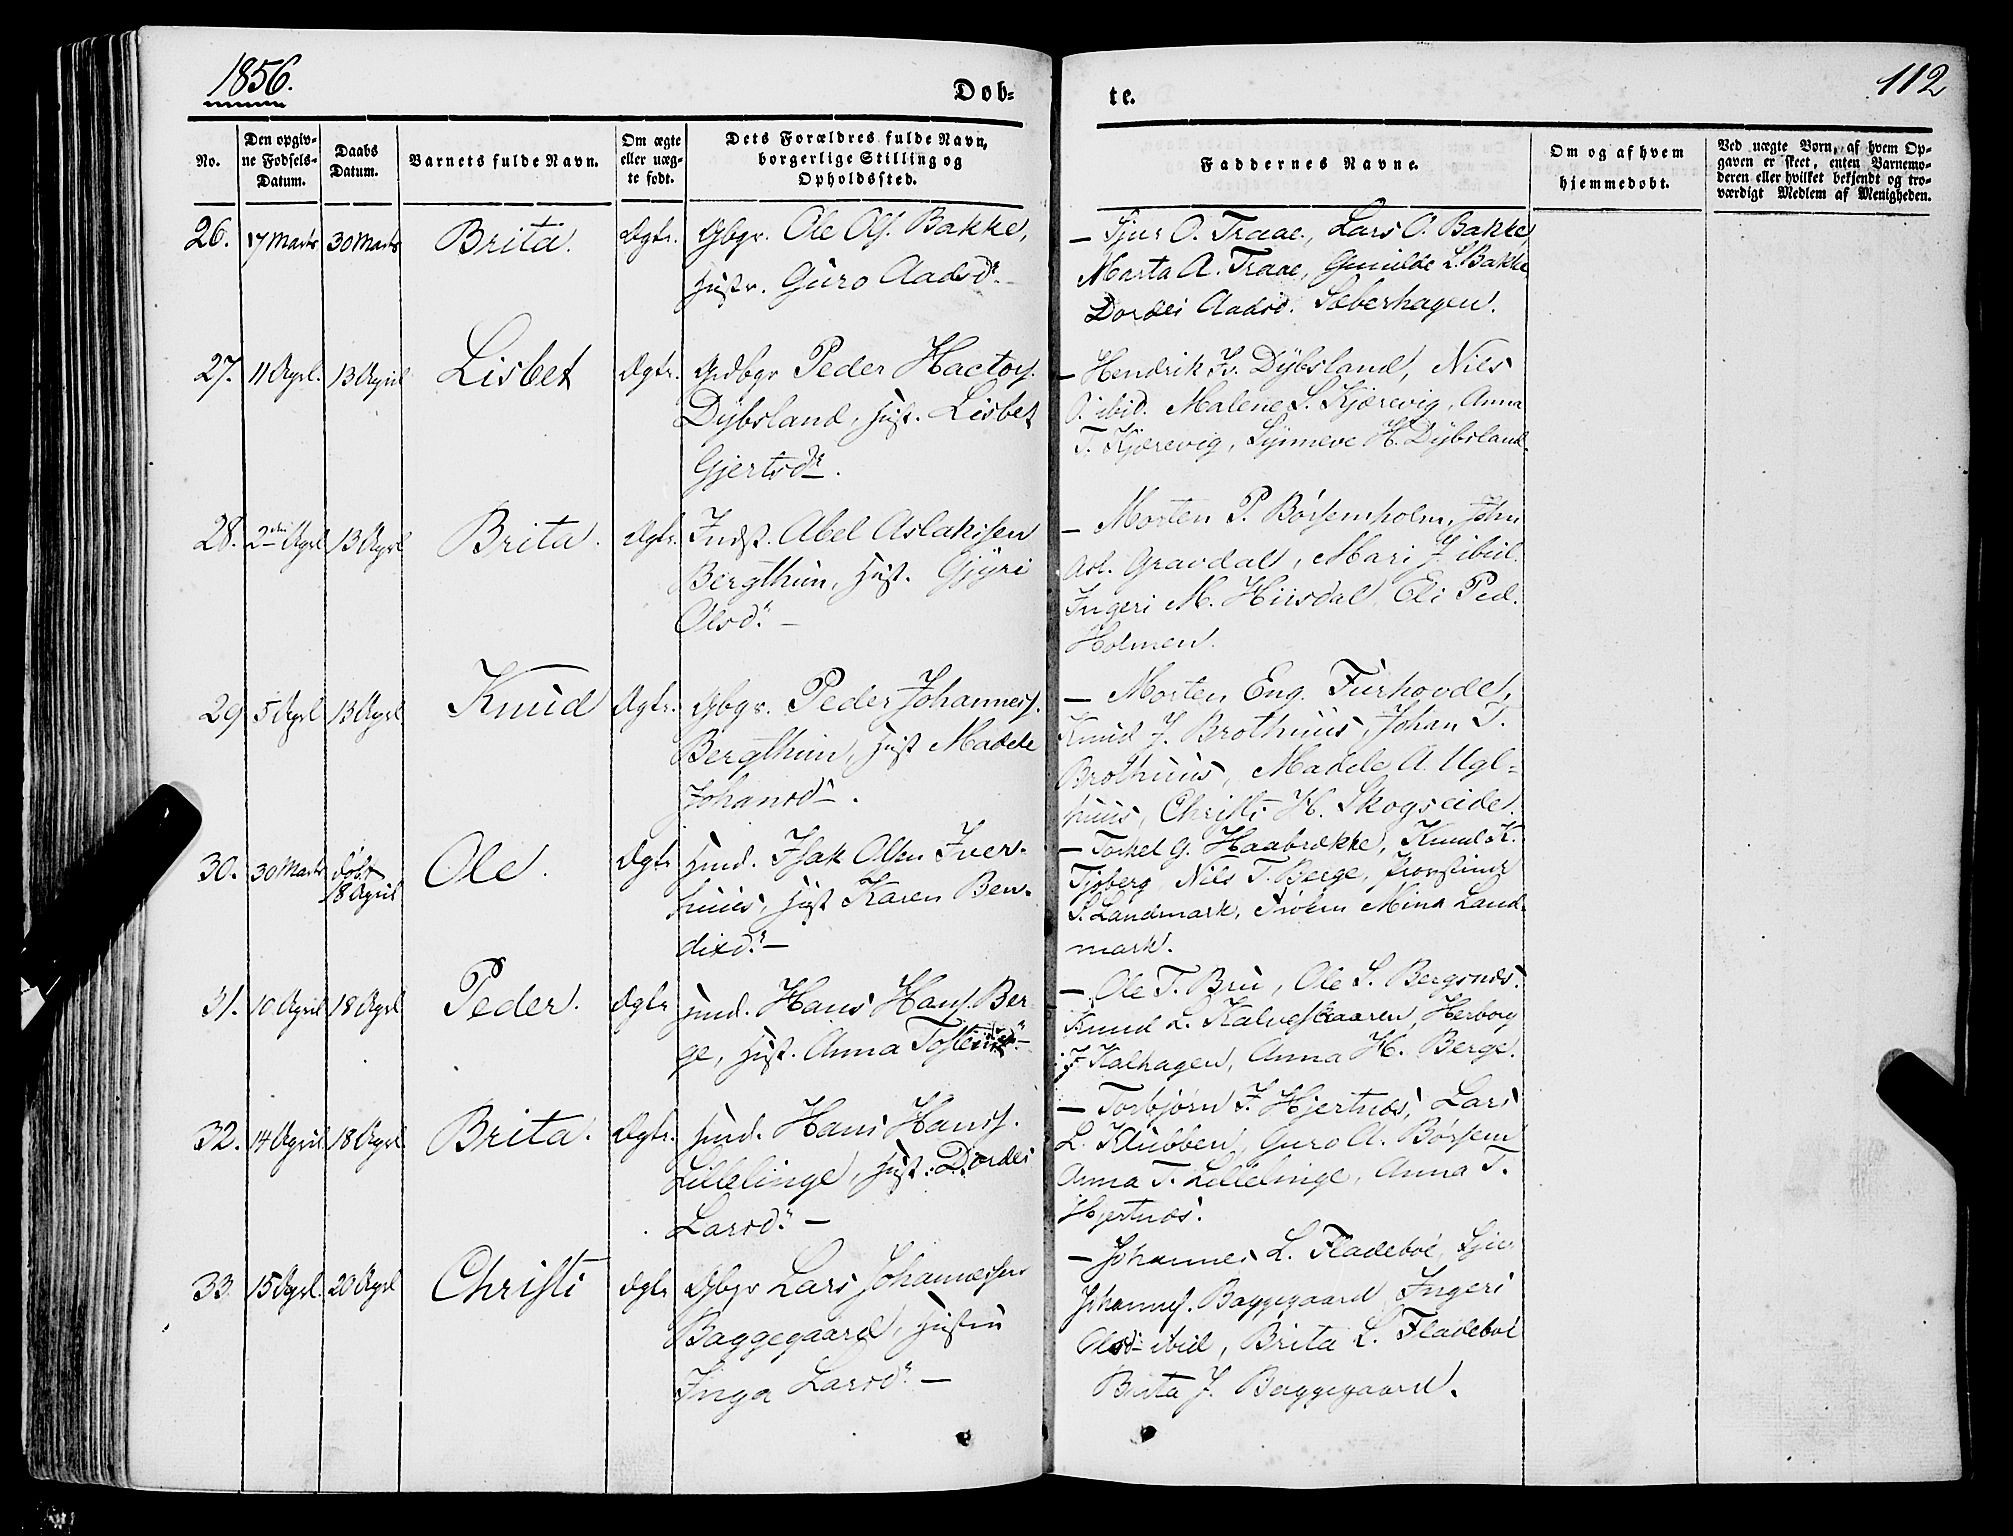 1856.
Døb-
te.
112
No.
Den opgiv-
ne Fødsels-
Datum.
Daabs
Datum.
Barnets fulde Navn.
Om ægte
eller uæg-
te født.
Dets Forældres fulde Navn,
borgerlige Stilling og
Opholdssted.
Faddernes Navne.
Om og af hvem
hjemmedøbt.
Ved uægte Børn, af hvem Op-
gaven er skeet, enten Barnemo-
deren eller hvilket bekjendt og tro-
værdigt Medlem af Menigheden.
26. 17 Marts 30 Marts Brita. Ægte. Gbgr. Ole Ols. Bakke,
Hustr. Guro Aadsdr.
— Sjur O. Traae, Lars O. Bakke
Marta A. Traae, Gunilde L. Bakke
Dordei Aadsd. Sæberhagen.
27. 11 Aprl. 13 April Lisbet Ægte. Grdbgr Peder Hactors.
Dybsland, Hust. Lisbet
Gjertsdr.
— Hendrik Dybsland, Nils
O. ibid. Malene S. Kjærevig, Anna
T. Kjærevig, Synneve H. Dybsland.
28. 2den Aprl 13 Aprl Brita. Ægte. Indst. Abel Aslaksen
Bergthun, Hust. Gjyri
Olsdr. —
— Morten P. Børsemholm, John
Asl. Gravdal, Mari J. ibid.
Ingeri M. Hiisdal, Eli Ped.
Holmen.
29 5 Aprl 13 Aprl Knud Ægte. Gbgr. Peder Johannes.
Bergthun, Hust Madele
Johansdr.
— Morten Eng. Furhovde,
Knud J. Brothuus, Johan T.
Brothuus, Madele A. Ugl-
huus, Christi H. Skogseide.
30. 30 Marts døbt
18 April Ole. Ægte Huud. Isak Olsen Iver-
huus, Hust Karen Ben-
dixdr. —
— Torkel G. Haabrække, Knud K.
Tjoberg, Nils T. Berge, Provstinne
S. Landmark, Frøken Mina Land-
mark.
31. 10 April 18 Aprl Peder. Ægte Huud. Hans Hans. Ber-
ge, Hust. Anna
— Ole T. Bru, Ole S. Bergsnæs.
Knud L. Kalveskaaren, Herborg
J Kalhagen, Anna H. Berge.
32. 14 April 18 Aprl Brita. Ægte. Huud. Hans Hans.
Lillelinge, Hust. Dordei
Larsdr. —
— Torbjørn I. Hjertnæs, Lars
L. Klubben, Guro A. Børsem
Anna T. Lillelinge, Anna T.
Hjertnæs.
33. 15 Aprl. 20 Aprl Christi Ægte Gbgr Lars Johannessen
Baggegaard, Hustru
Inga Larsdr. —
— Johannes L. Fladeboe, Sjur
Johannes. Baggegaard Ingeri
Olsd ibid, Brita L. Fladeboe
Brita J. Baggegaard.